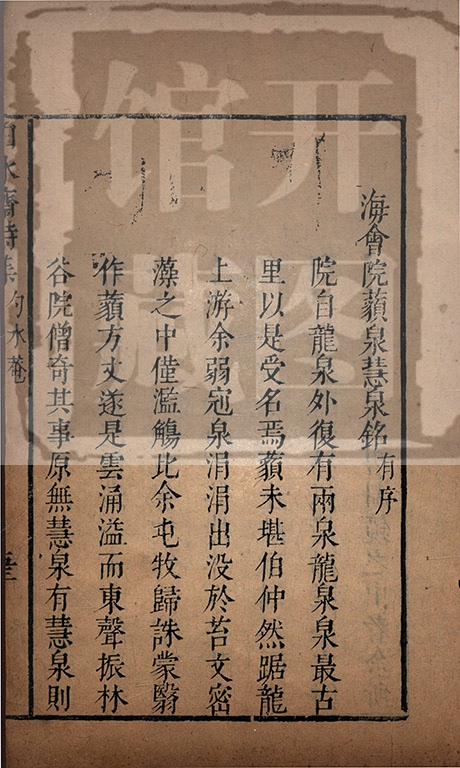 海會院蘋泉慧泉銘有序
院自龍泉外復有兩泉龍泉泉最古
里以是受名焉蘋未堪伯仲然踞龍
上游余弱冠泉涓涓出没於苔文密
藻之中僅濫觴比余屯牧歸誅蒙翳
作蘋方丈遂是雲涌溢而東聲振林
谷院僧奇其事原無慧泉有慧泉則
白水齋詩集 勺水菴
開圖
館藏